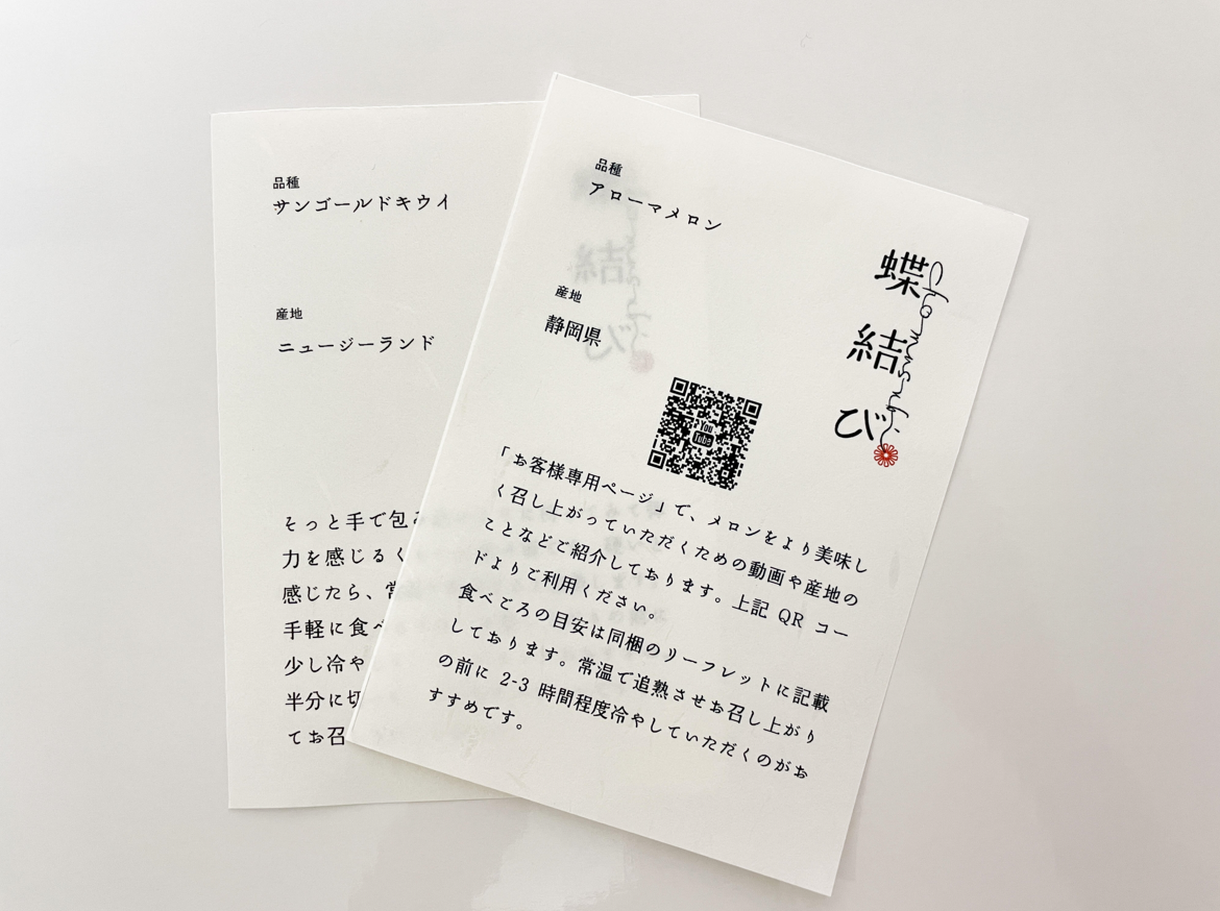 品種
サンゴールドキウイ
産地
ニュージーランド
そっと手で包
力を感じるく
感じたら、常
手軽に食べ
少し冷や
半分に切
てお召
品種
アローマメロン
産地
静岡県
蝶結び
cho-musubi
You
Tube
「お客様専用ページ」で、メロンをより美味し
く召し上がっていただくための動画や産地の
ことなどご紹介しております。上記 QR コー
ドよりご利用ください。
食べごろの目安は同梱のリーフレットに記載
しております。常温で追熟させお召し上がり
の前に 2-3 時間程度冷やしていただくのがお
すすめです。